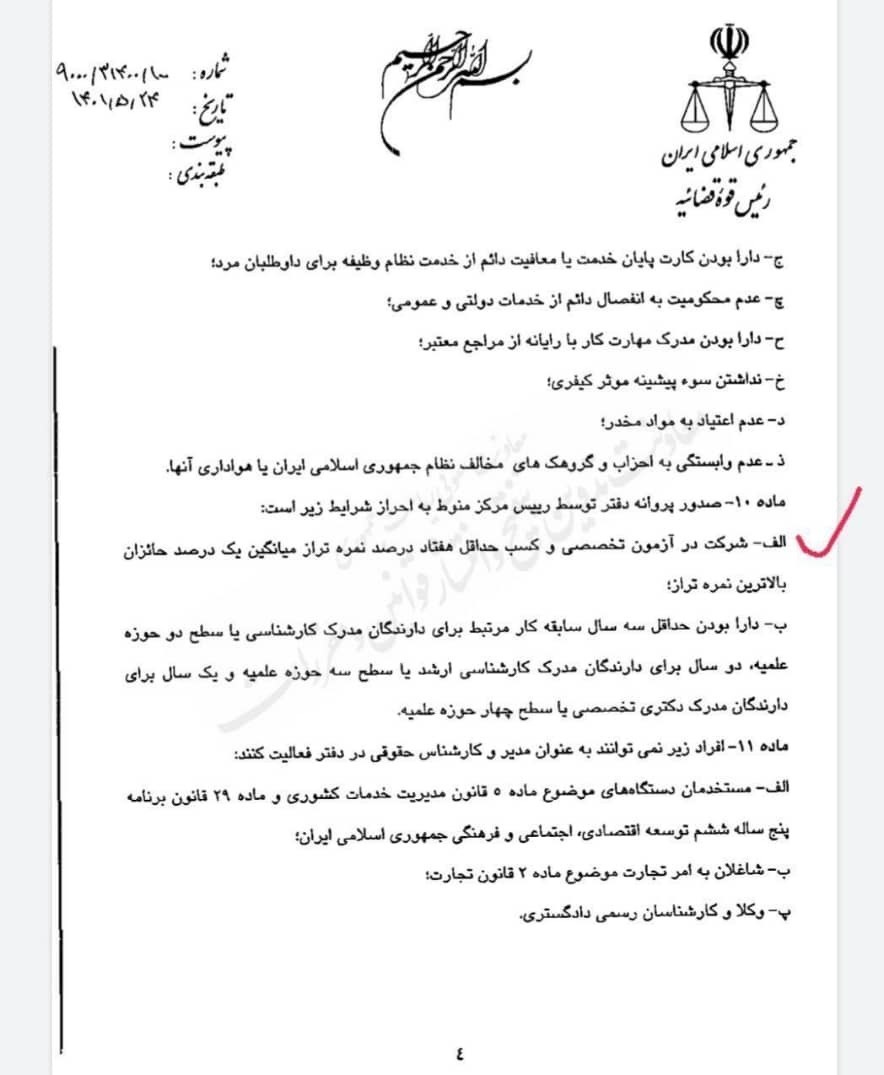 بسم الله الرحمن الرحیم
جمهوری اسلامی ایران
رئیس قوهٔ قضائیه
شماره: ۹۰۰۰/۳۱۴۰۰/۱۰۰
تاریخ: ۱۴۰۱/۵/۲۴
پیوست:
طبقه‌بندی:
ج- دارا بودن کارت پایان خدمت یا معافیت دائم از خدمت نظام وظیفه برای داوطلبان مرد؛
چ- عدم محکومیت به انفصال دائم از خدمات دولتی و عمومی؛
ح- دارا بودن مدرک مهارت کار با رایانه از مراجع معتبر؛
خ- نداشتن سوء پیشینه موثر کیفری؛
د- عدم اعتیاد به مواد مخدر؛
ذ- عدم وابستگی به احزاب و گروهک های مخالف نظام جمهوری اسلامی ایران یا هواداری آنها.
ماده ۱۰- صدور پروانه دفتر توسط رییس مرکز منوط به احراز شرایط زیر است:
الف- شرکت در آزمون تخصصی و کسب حداقل هفتاد درصد نمره تراز میانگین یک درصد حائزان
بالاترین نمره تراز؛
ب- دارا بودن حداقل سه سال سابقه کار مرتبط برای دارندگان مدرک کارشناسی یا سطح دو حوزه
علمیه، دو سال برای دارندگان مدرک کارشناسی ارشد یا سطح سه حوزه علمیه و یک سال برای
دارندگان مدرک دکتری تخصصی یا سطح چهار حوزه علمیه.
ماده ۱۱- افراد زیر نمی توانند به عنوان مدیر و کارشناس حقوقی در دفتر فعالیت کنند:
الف- مستخدمان دستگاه‌های موضوع ماده ۵ قانون مدیریت خدمات کشوری و ماده ۲۹ قانون برنامه
پنج ساله ششم توسعه اقتصادی، اجتماعی و فرهنگی جمهوری اسلامی ایران؛
ب- شاغلان به امر تجارت موضوع ماده ۲ قانون تجارت؛
پ- وکلا و کارشناسان رسمی دادگستری.
٤